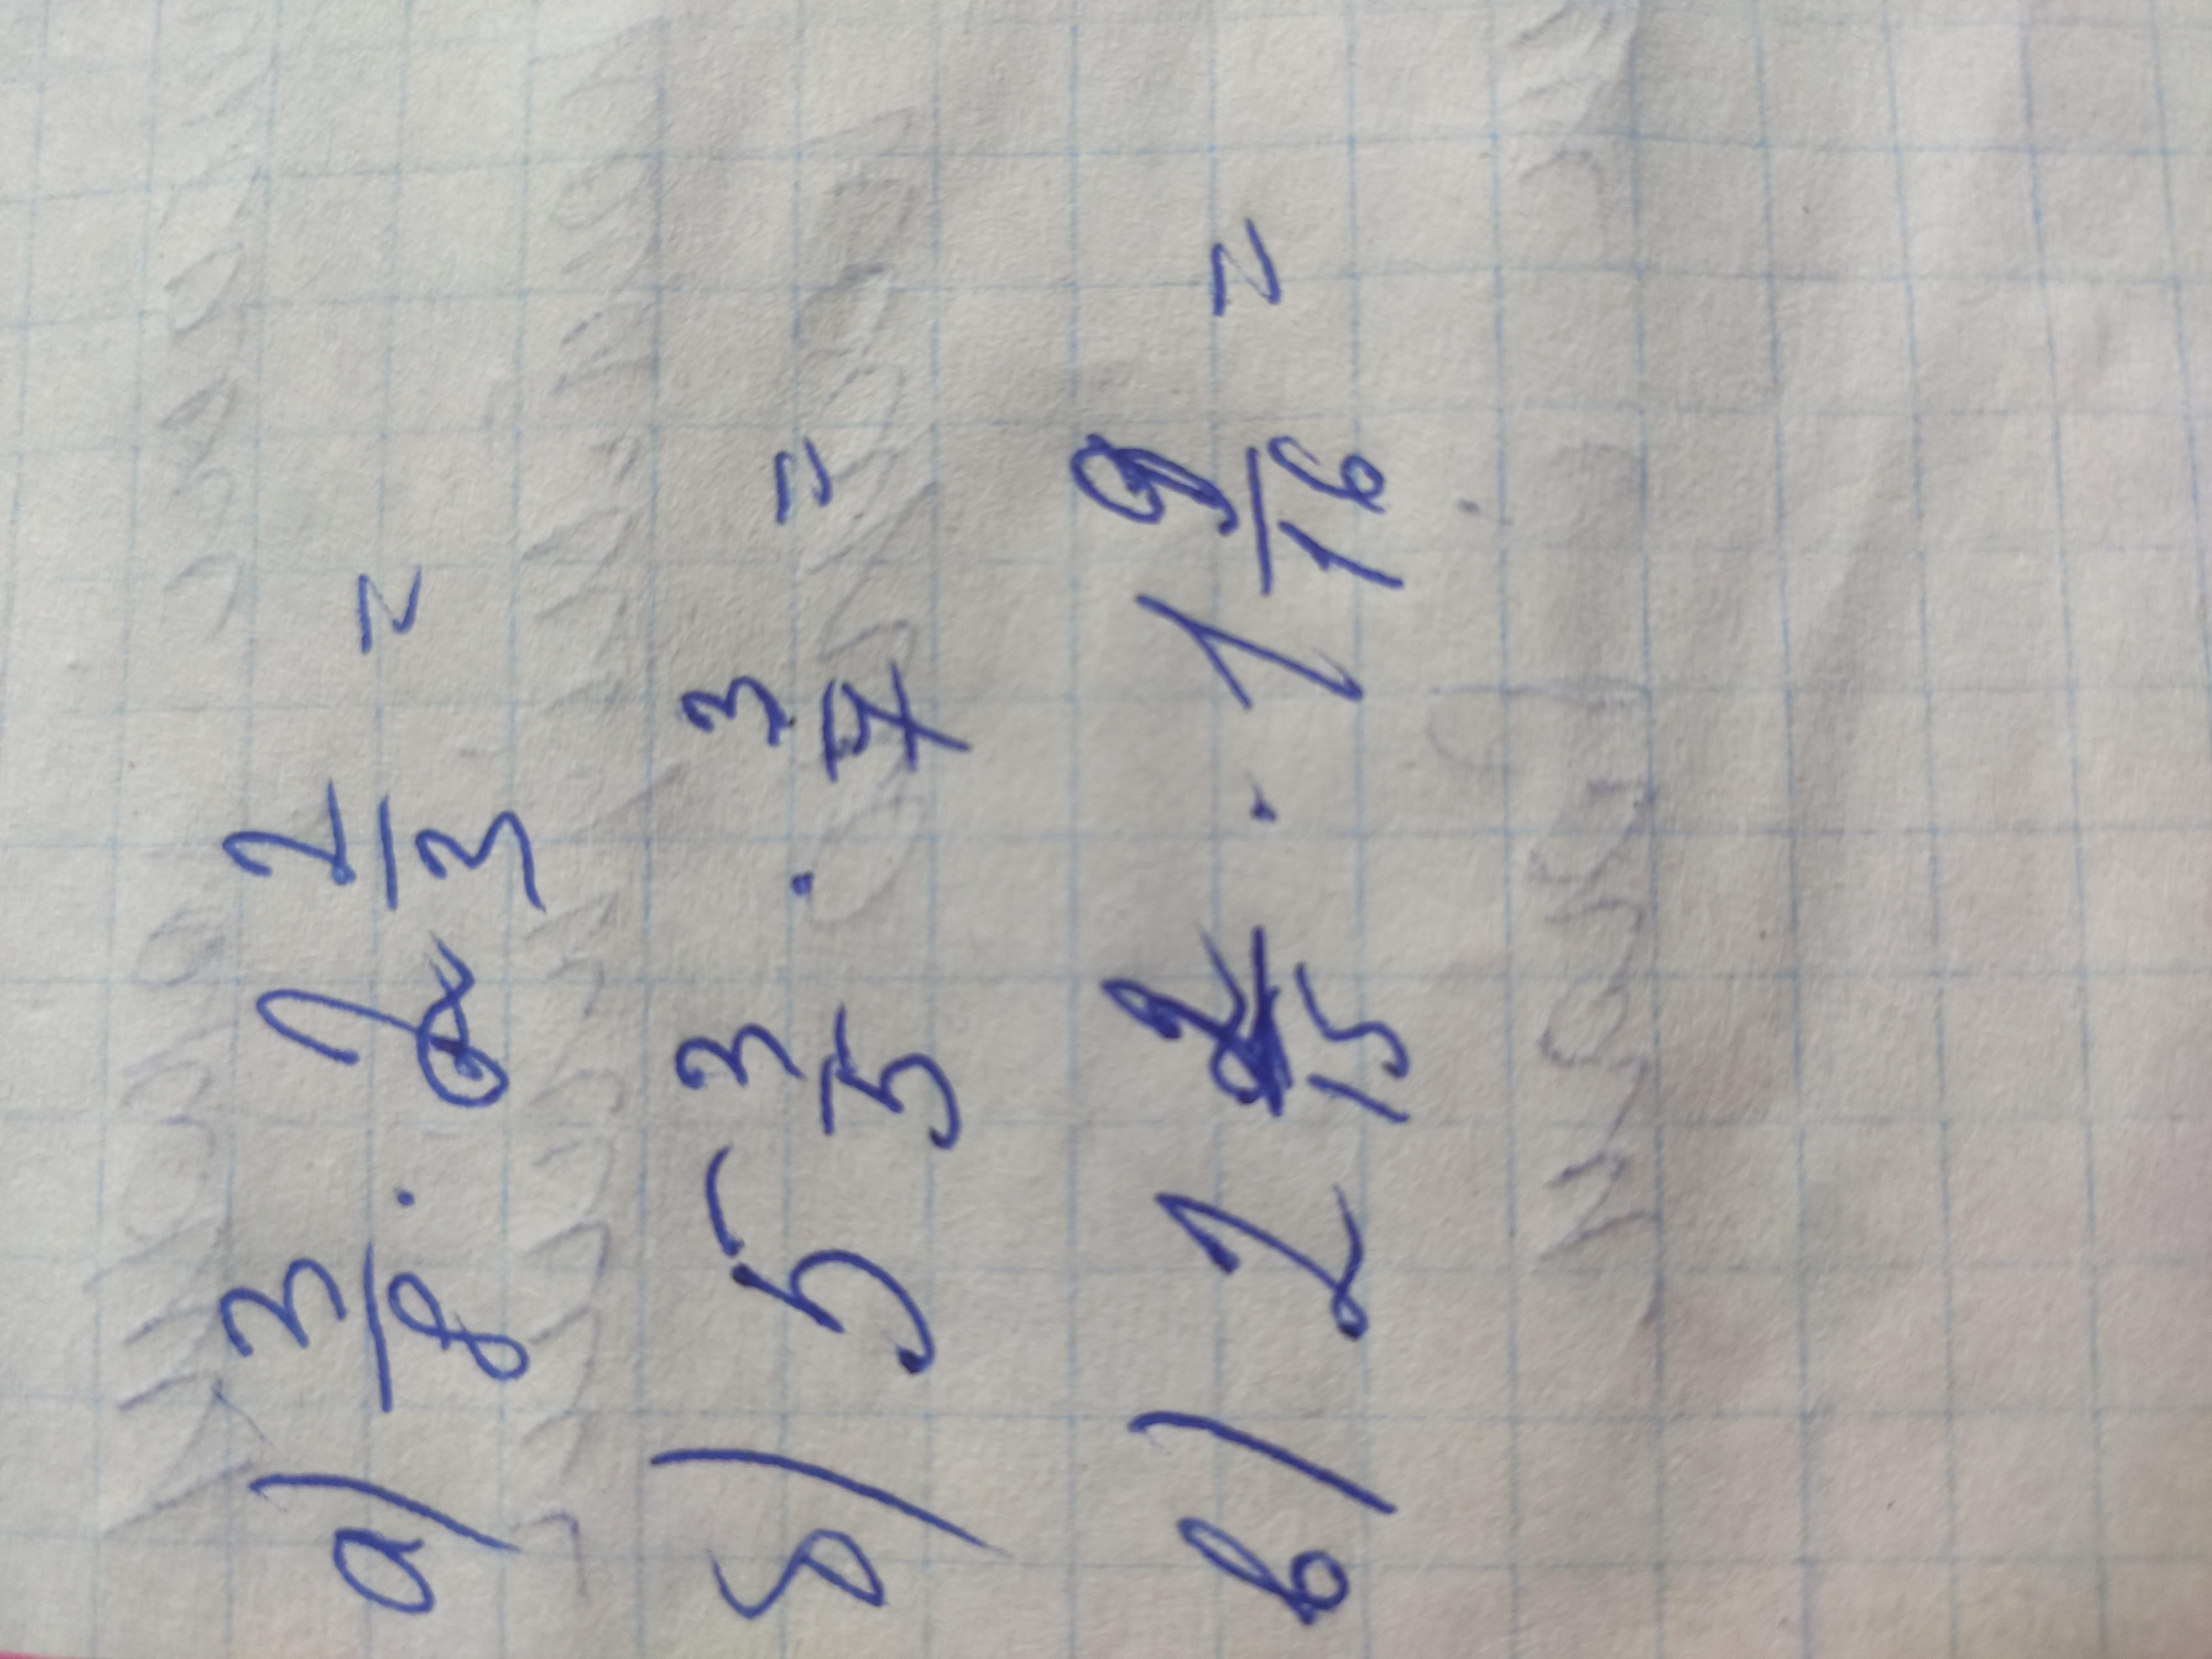 а) 3/8 · 2 2/3 =
б) 5 3/5 · 3/7 =
в) 2 2/15 · 1 9/16 =